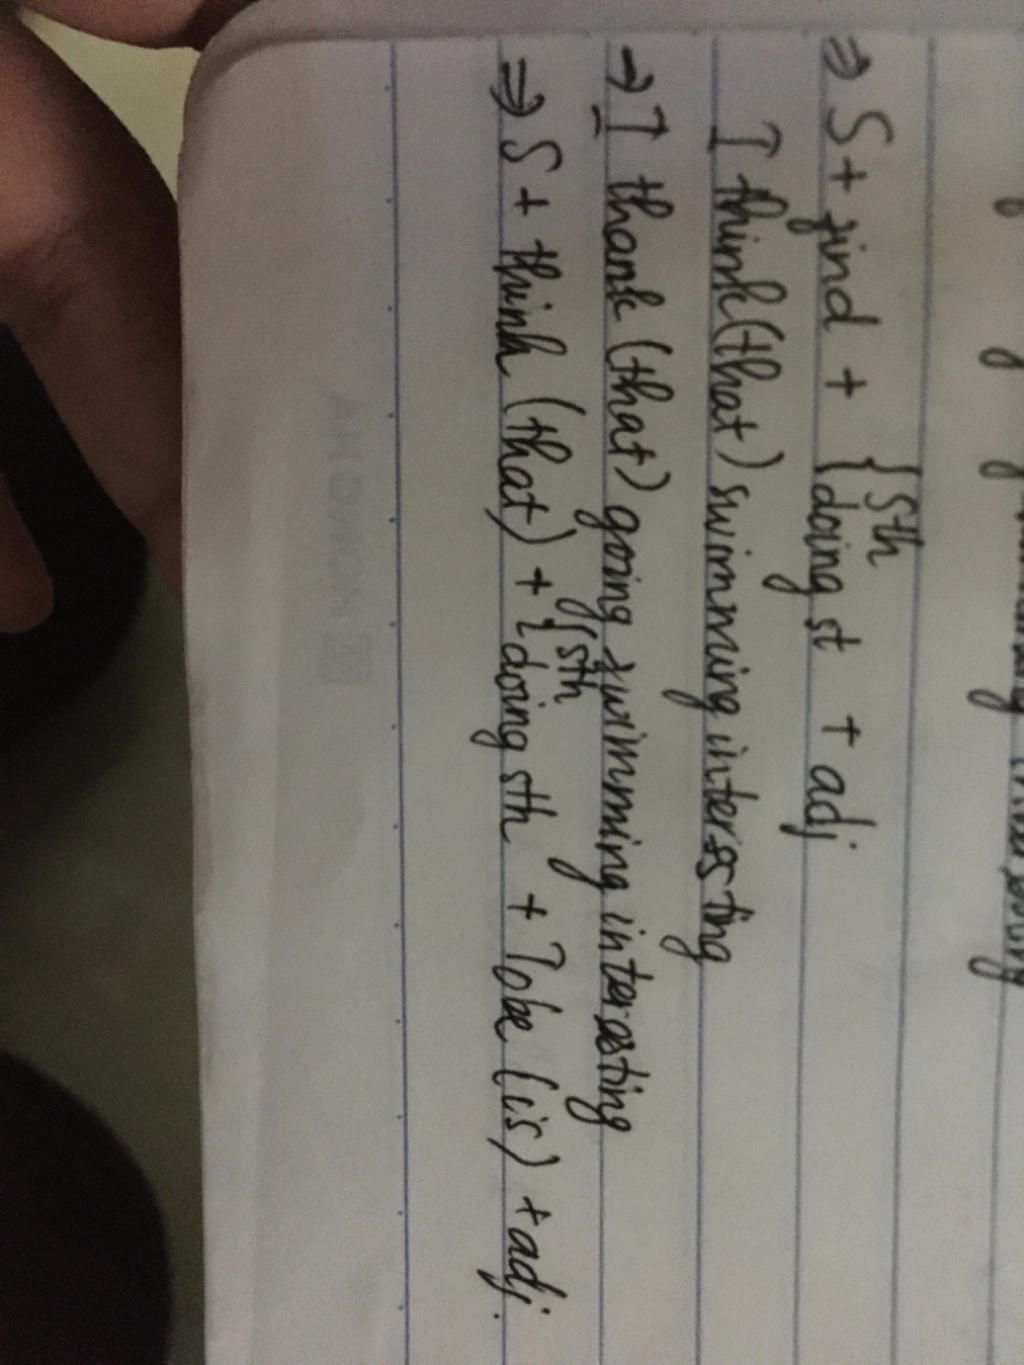 ⇒ S + find + { sth
doing st + adj
I think (that) swimming interesting
→ I thank (that) going swimming interesting
⇒ S + think (that) + { sth
doing sth + Tobe (is) + adj.